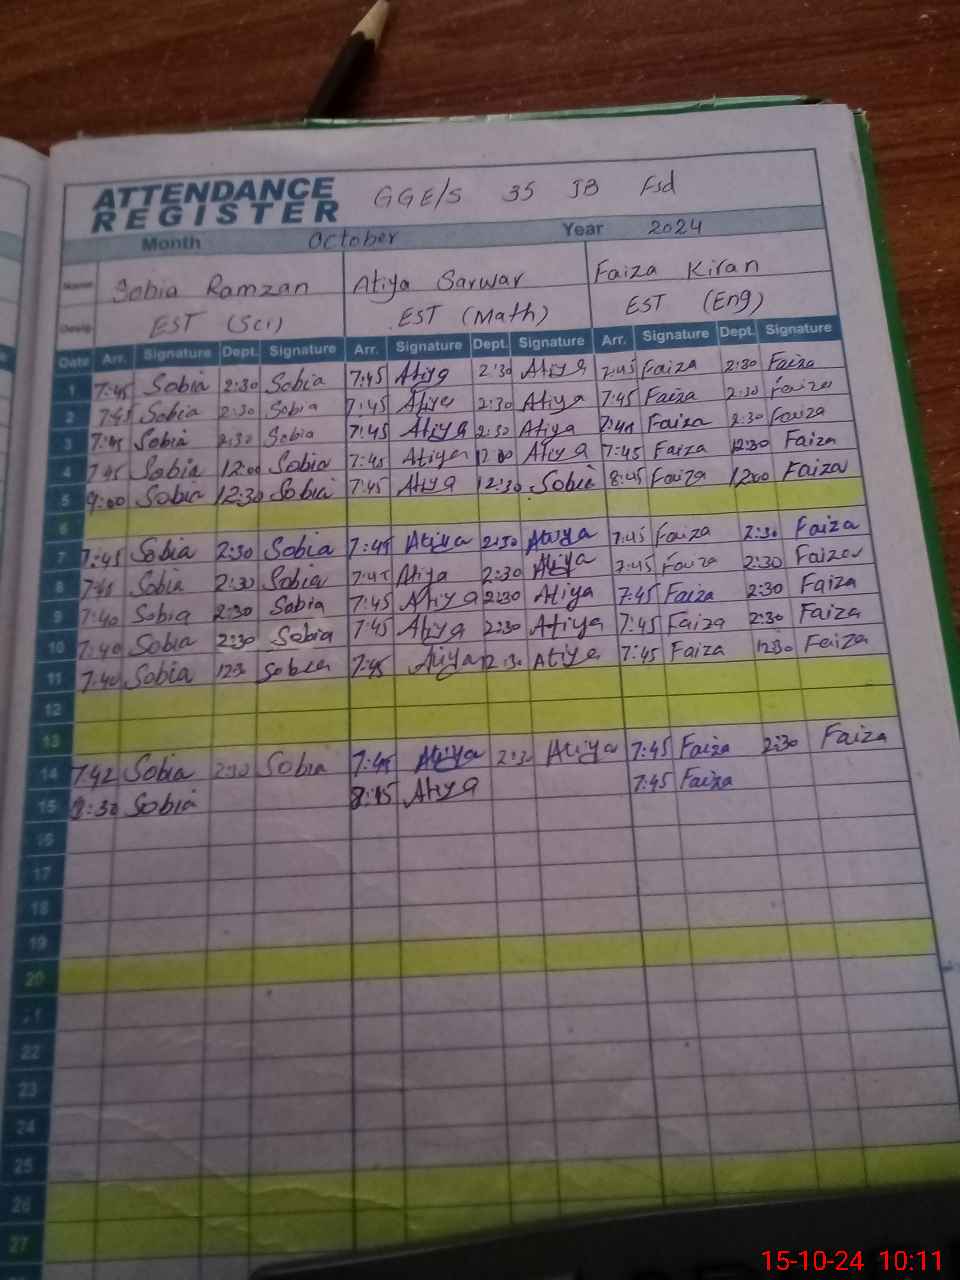 ATTENDANCE REGISTER GGE/S 35 JB Fsd
Month October Year 2024
Name Sobia Ramzan Atiya Sarwar Faiza Kiran
Desig. EST (Sci) EST (Math) EST (Eng)
Date Arr. Signature Dept. Signature Arr. Signature Dept. Signature Arr. Signature Dept. Signature
1 7:45 Sobia 2:30 Sobia 7:45 Atiya 2:30 Atiya 7:45 Faiza 2:30 Faiza
2 7:45 Sobia 2:30 Sobia 7:45 Atiya 2:30 Atiya 7:45 Faiza 2:30 Faiza
3 7:45 Sobia 2:30 Sobia 7:45 Atiya 2:30 Atiya 7:45 Faiza 2:30 Faiza
4 7:45 Sobia 12:00 Sobia 7:45 Atiya Atiya 7:45 Faiza 12:30 Faiza
5 9:00 Sobia 12:30 Sobia 7:45 Atiya 12:30 Sobia 8:45 Faiza 12:00 Faiza
6
7 7:45 Sobia 2:30 Sobia 7:45 Atiya 2:30 Atiya 7:45 Faiza 2:30 Faiza
8 7:45 Sobia 2:30 Sobia 7:45 Atiya 2:30 Atiya 7:45 Faiza 2:30 Faiza
9 7:40 Sobia 2:30 Sobia 7:45 Atiya 2:30 Atiya 7:45 Faiza 2:30 Faiza
10 7:40 Sobia 2:30 Sobia 7:45 Atiya 2:30 Atiya 7:45 Faiza 2:30 Faiza
11 7:40 Sobia 12:3 Sobia 7:45 Atiya 12:30 Atiya 7:45 Faiza 12:30 Faiza
12
13
14 7:42 Sobia 2:30 Sobia 7:45 Atiya 2:30 Atiya 7:45 Faiza 2:30 Faiza
15 8:30 Sobia 8:15 Atiya 7:45 Faiza
16
17
18
19
20
21
22
23
24
25
26
27
15-10-24 10:11